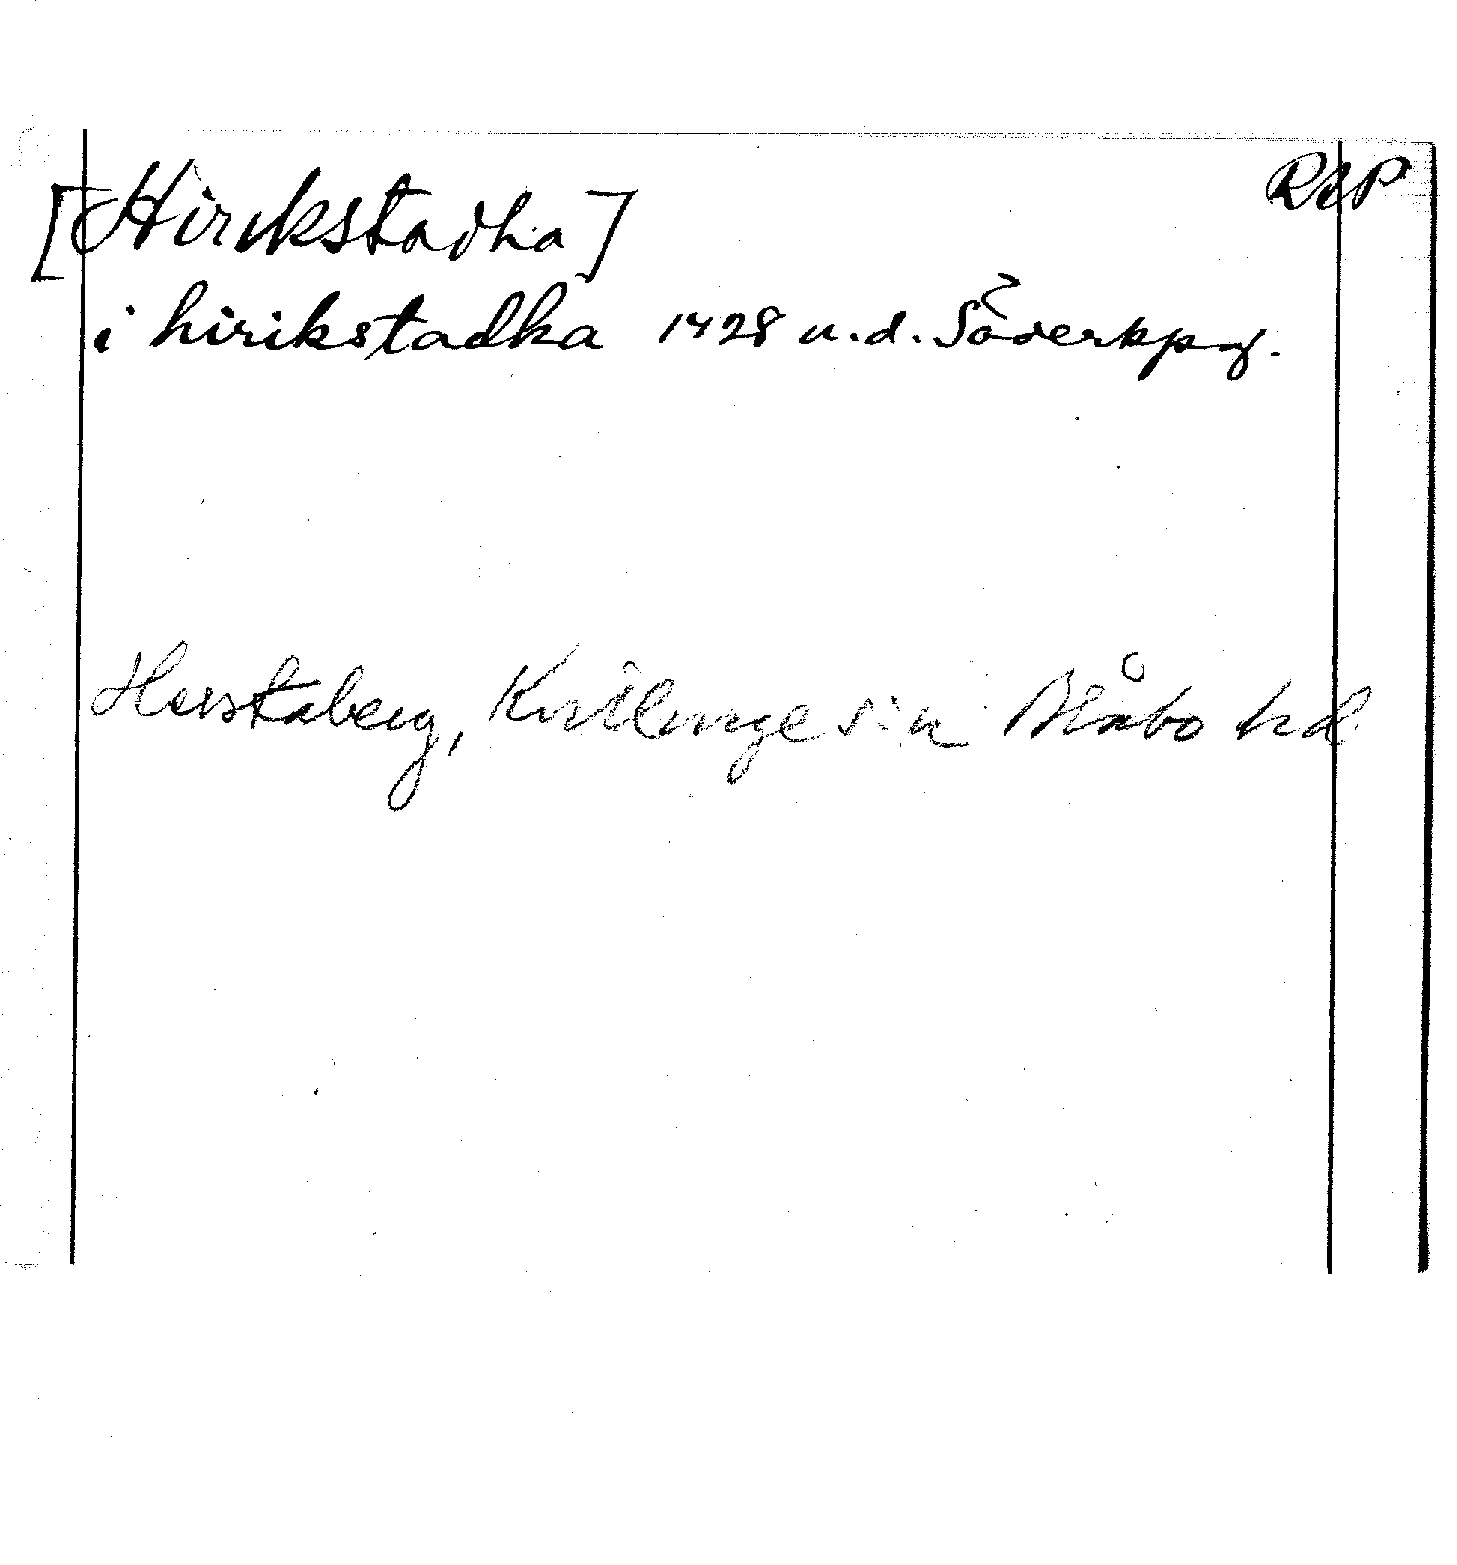 RAP
[Hirikstadha]
i hirikstadha 1428 u.d. Söderkpg.
Herstaberg, Kvillinge sn Bråbo hd